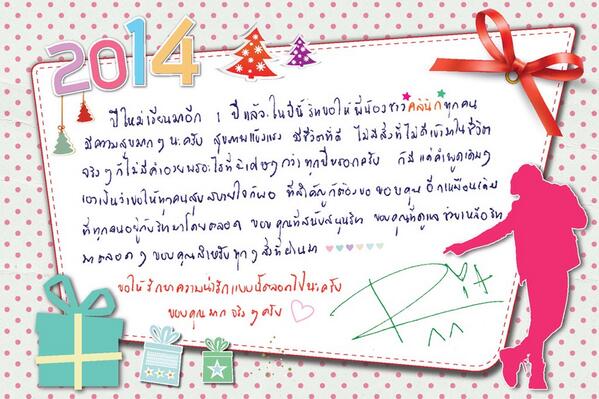 2014
ปีใหม่เวียนมาอีก 1 ปีแล้ว ในปีนี้ ริทขอให้ พี่น้องชาวคลินิกทุกคน
มีความสุขมากๆนะครับ สุขภาพแข็งแรง มีชีวิตที่ดี ไม่มีสิ่งที่ไม่ดีเข้ามาในชีวิต
จริงๆก็ไม่มีคำอวยพรอะไรที่พิเศษกว่าทุกปีหรอกครับ ก็มีแค่คำพูดเดิมๆ
เอาเป็นว่าขอให้ทุกคนสุขสบายใจก็พอ ที่สำคัญก็ต้องขอขอบคุณ อีกเหมือนเดิม
ที่ทุกคนอยู่กับริทมาโดยตลอด ขอบคุณที่สนับสนุนริท ขอบคุณที่ดูแล ช่วยเหลือริท
มาตลอดๆ ขอบคุณสำหรับทุกๆสิ่งที่ผ่านมา
ขอให้รักษาความน่ารักแบบนี้ตลอดไปนะครับ
ขอบคุณมาก จริงๆครับ
Rit